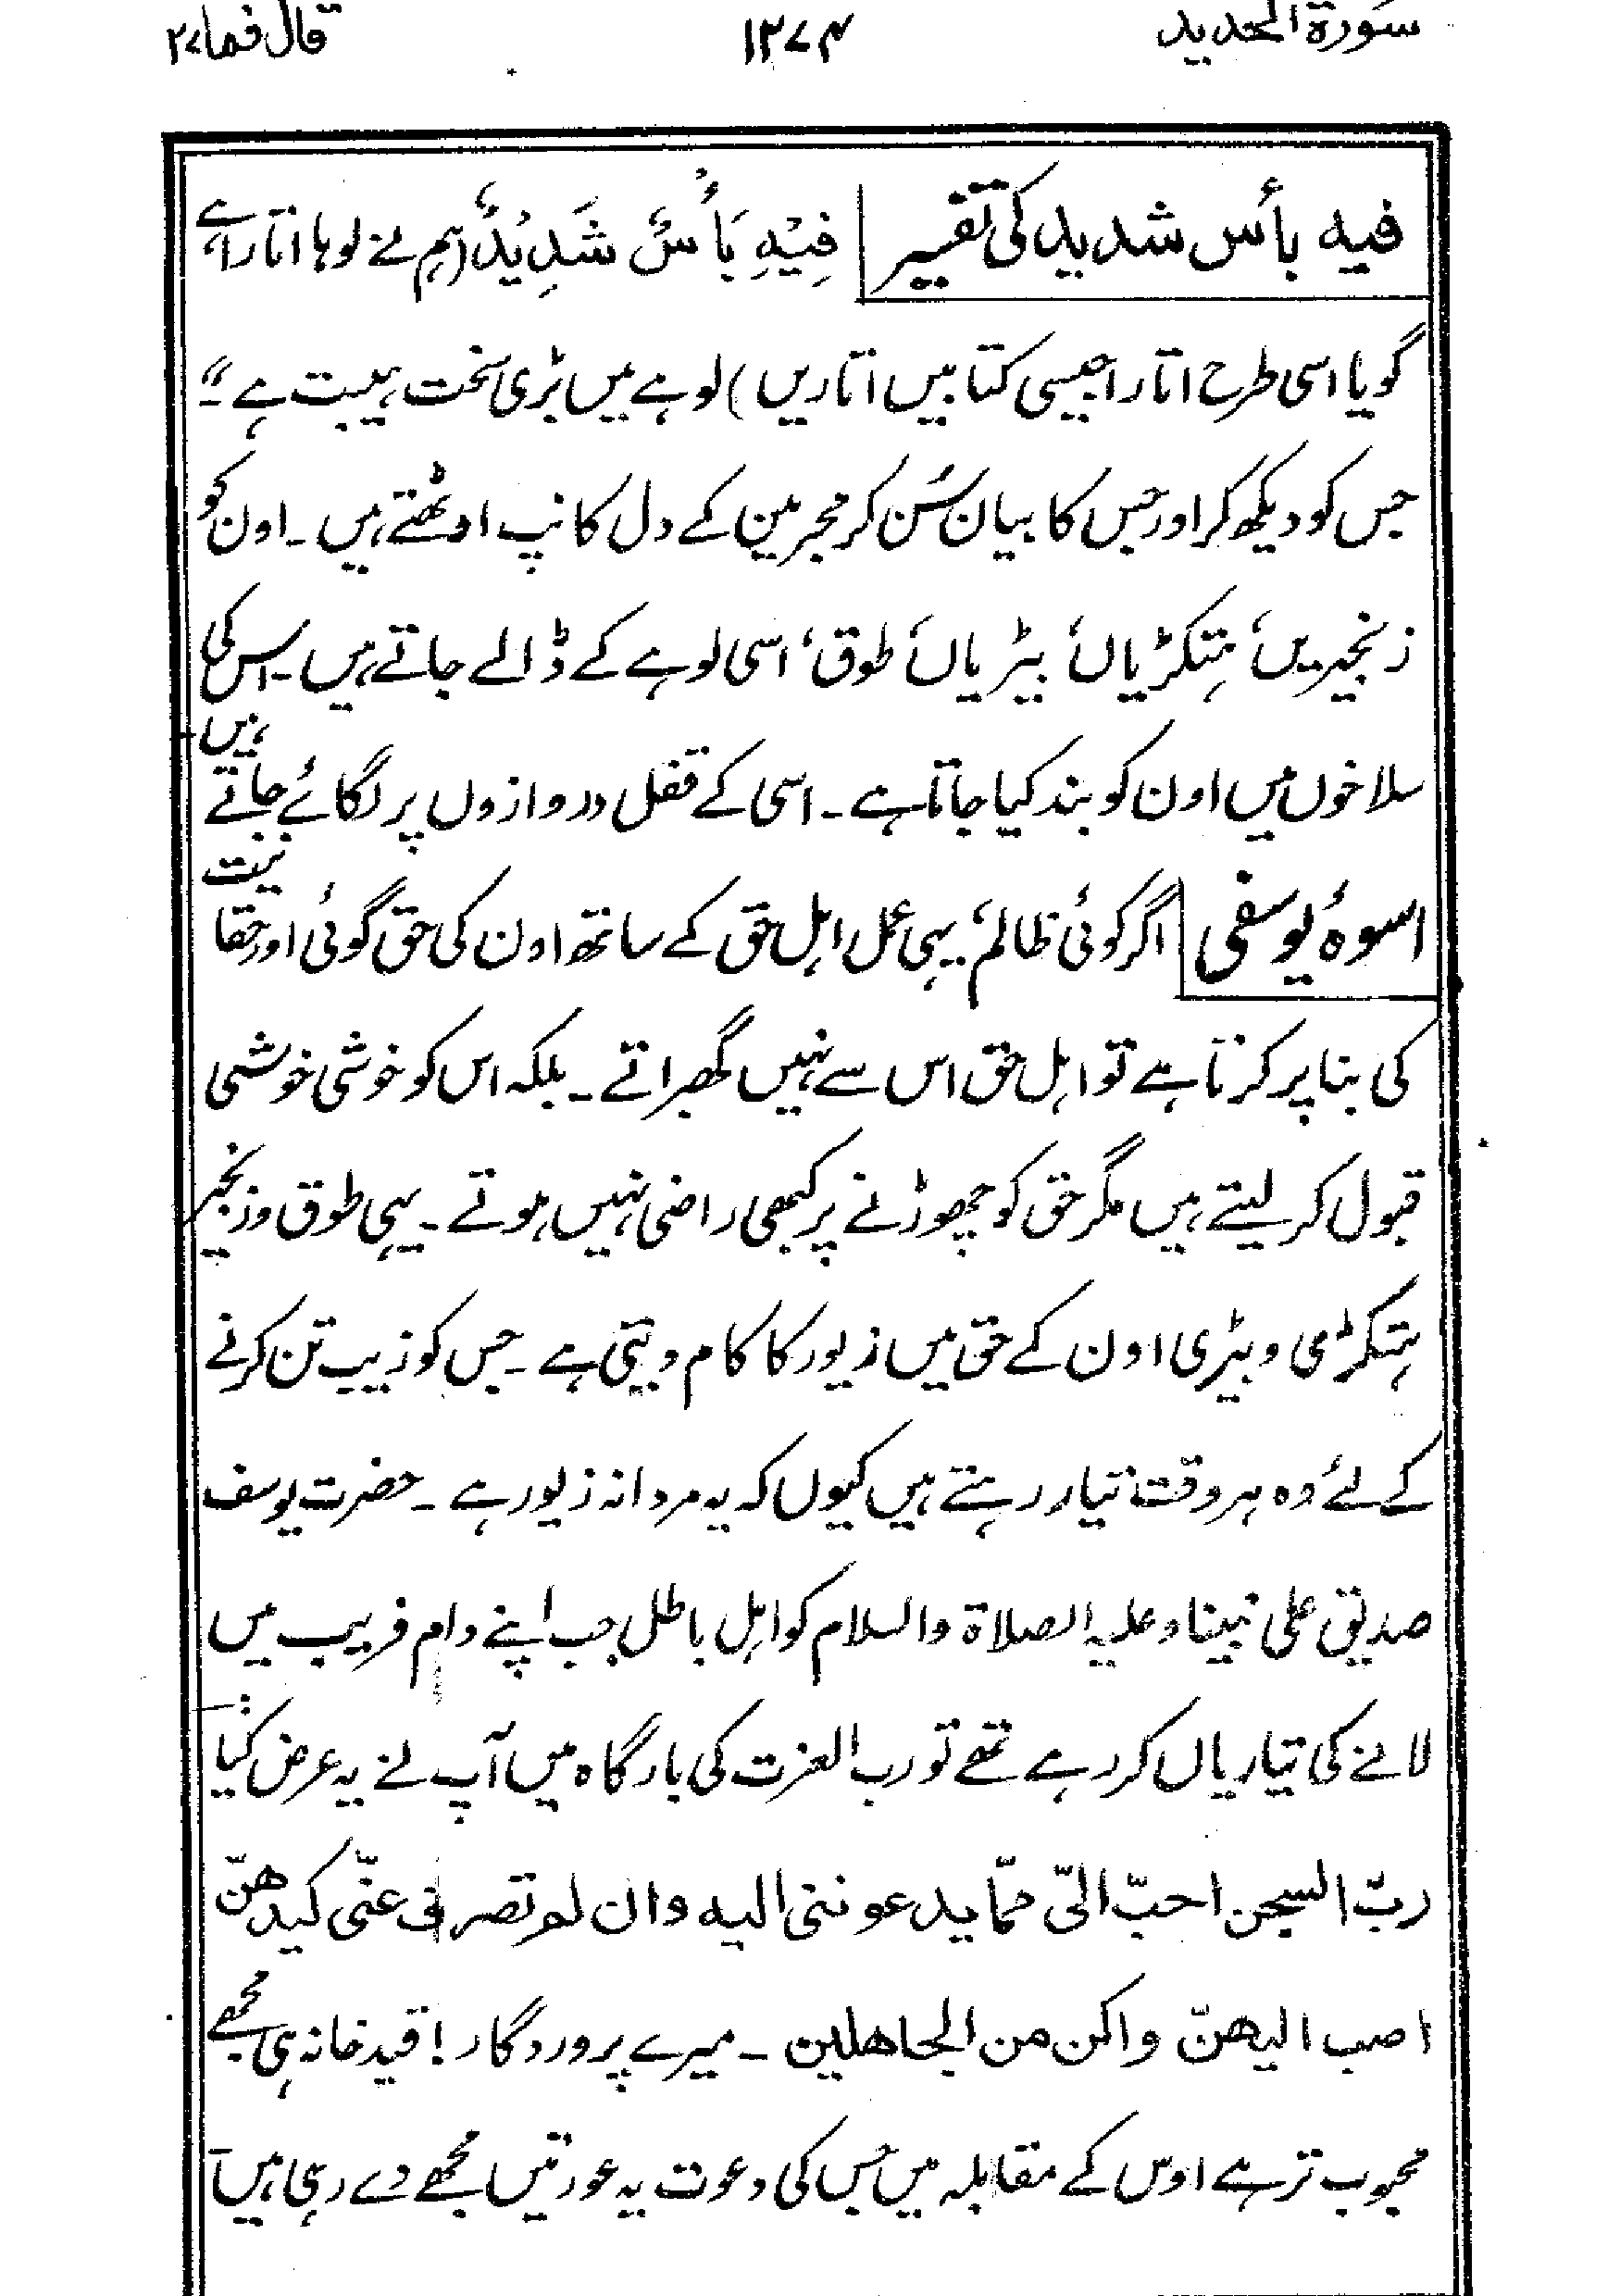 سورة الحديد ۱۳۷۴ قال فما ۲۷
فيه بأس شديد کی تفسیر فِیْهِ بَأْسٌ شَدِیْدٌ (ہم نے لوہا اتارا ہے
گویا اسی طرح اتارا جیسی کتابیں اتاریں) لوہے میں بڑی سخت ہیبت ہے“
جس کو دیکھ کر اور جس کا بیان سُن کر مجرمین کے دل کانپ اوٹھتے ہیں ۔ اون کو
زنجیریں، ہتکڑیاں، بیڑیاں، طوق، اسی لوہے کے ڈالے جاتے ہیں ۔ اس کی
سلاخوں میں اون کو بند کیا جاتا ہے ۔ اسی کے قفل دروازوں پر لگائے جاتے ہیں
اسوۂ یوسفی اگر کوئی ظالم، یہی عمل اہل حق کے ساتھ اون کی حق گوئی اور حقانیت
کی بنا پر کرتا ہے تو اہل حق اس سے نہیں گھبراتے ۔ بلکہ اس کو خوشی خوشی
قبول کر لیتے ہیں مگر حق کو چھوڑنے پر کبھی راضی نہیں ہوتے ۔ یہی طوق و زنجیر
ہتکڑی و بیڑی اون کے حق میں زیور کا کام دیتی ہے ۔ جس کو زیب تن کرنے
کے لئے وہ ہر وقت تیار رہتے ہیں کیوں کہ یہ مردانہ زیور ہے ۔ حضرت یوسف
صدیق علی نبینا و علیہ الصلاۃ والسلام کو اہل باطل جب اپنے دام فریب میں
لانے کی تیاریاں کر رہے تھے تو رب العزت کی بارگاہ میں آپ نے یہ عرض کیا
ربّ السجن احبّ الیّ ممّا يدعوننی اليه وان لم تصرف عنّی كيدهنّ
اصب اليهنّ واكن من الجاهلين ۔ میرے پروردگار! قید خانہ ہی مجھے
محبوب تر ہے اوس کے مقابلہ میں جس کی دعوت یہ عورتیں مجھے دے رہی ہیں